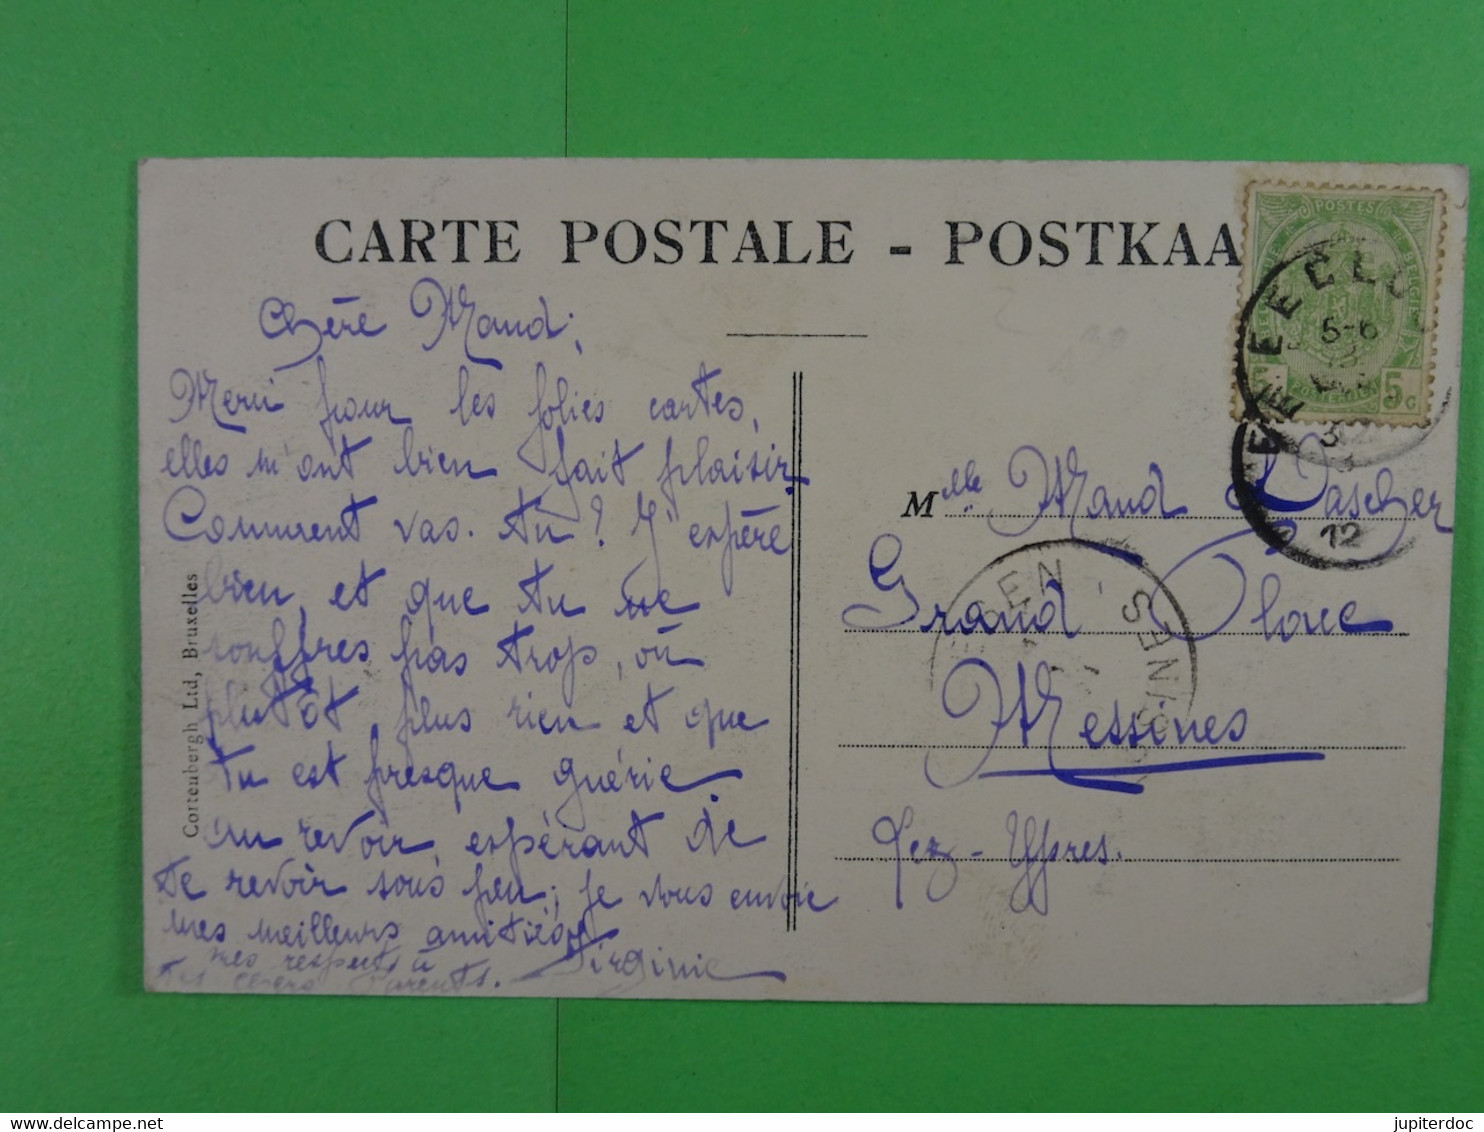 CARTE POSTALE - POSTKAA
Chère Maud;
Merci pour les jolies cartes,
elles m'ont bien fait plaisir.
Comment vas-tu? J'espère
bien, et que tu ne
souffres pas trop, où
plutôt, plus rien et que
tu est presque guérie
au revoir, espérant de
te revoir sous peu; je vous envoie
mes meilleurs amitiés
mes respects à
tes chers Parents. Virginie
Cortenbergh Ltd, Bruxelles
POSTES
5 c
EECLO
5-6
12
Mlle Maud
Grand'Place
Messines
lez-Yppres.
MESSINES
delcampe.net
jupiterdoc